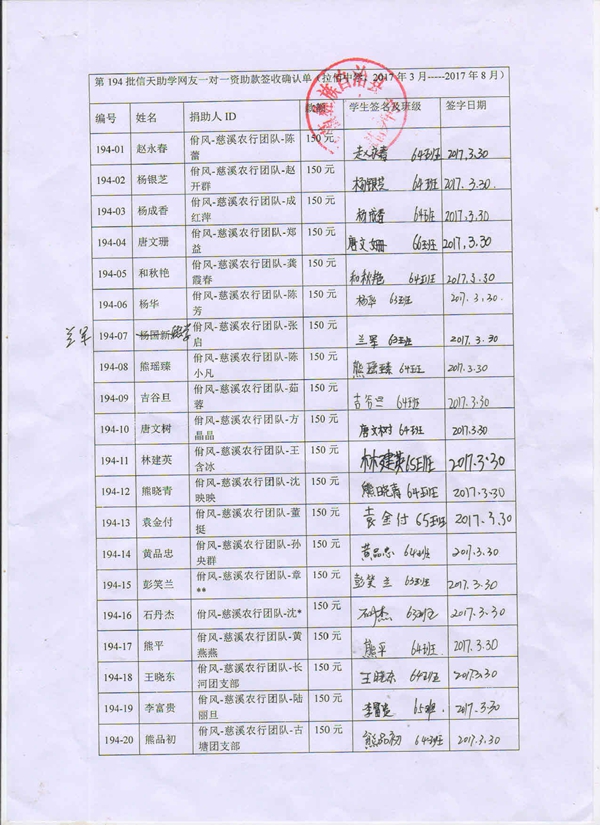 第 194 批信天助学网友一对一资助款签收确认单（拉伯中学，2017 年 3 月-----2017 年 8 月）
编号 姓名 捐助人 ID 款额 学生签名及班级 签字日期
194-01 赵永春 佾风-慈溪农行团队-陈蕾 150 元 赵永春 64班 2017.3.30
194-02 杨银芝 佾风-慈溪农行团队-赵开群 150 元 杨银芝 64班 2017.3.30
194-03 杨成香 佾风-慈溪农行团队-成红萍 150 元 杨成香 64班 2017.3.30
194-04 唐文珊 佾风-慈溪农行团队-郑益 150 元 唐文姗 66班 2017.3.30
194-05 和秋艳 佾风-慈溪农行团队-龚霞春 150 元 和秋艳 64班 2017.3.30
194-06 杨华 佾风-慈溪农行团队-陈芳 150 元 杨华 63班 2017.3.30
兰军 194-07 杨国新 佾风-慈溪农行团队-张启 150 元 兰军 63班 2017.3.30
194-08 熊瑶臻 佾风-慈溪农行团队-陈小凡 150 元 熊瑶臻 64班 2017.3.30
194-09 吉谷旦 佾风-慈溪农行团队-茹蓉 150 元 吉谷旦 64班 2017.3.30
194-10 唐文树 佾风-慈溪农行团队-方晶晶 150 元 唐文树 64班 2017.3.30
194-11 林建英 佾风-慈溪农行团队-王含冰 150 元 林建英 65班 2017.3.30
194-12 熊晓青 佾风-慈溪农行团队-沈映映 150 元 熊晓青 64班 2017.3.30
194-13 袁金付 佾风-慈溪农行团队-董挺 150 元 袁金付 65班 2017.3.30
194-14 黄品忠 佾风-慈溪农行团队-孙央群 150 元 黄品忠 64班 2017.3.30
194-15 彭笑兰 佾风-慈溪农行团队-章** 150 元 彭笑兰 63班 2017.3.30
194-16 石丹杰 佾风-慈溪农行团队-沈* 150 元 石丹杰 63班 2017.3.30
194-17 熊平 佾风-慈溪农行团队-黄燕燕 150 元 熊平 64班 2017.3.30
194-18 王晓东 佾风-慈溪农行团队-长河团支部 150 元 王晓东 64班 2017.3.30
194-19 李富贵 佾风-慈溪农行团队-陆丽旦 150 元 李富贵 65班 2017.3.30
194-20 熊品初 佾风-慈溪农行团队-古塘团支部 150 元 熊品初 64班 2017.3.30
族自治县